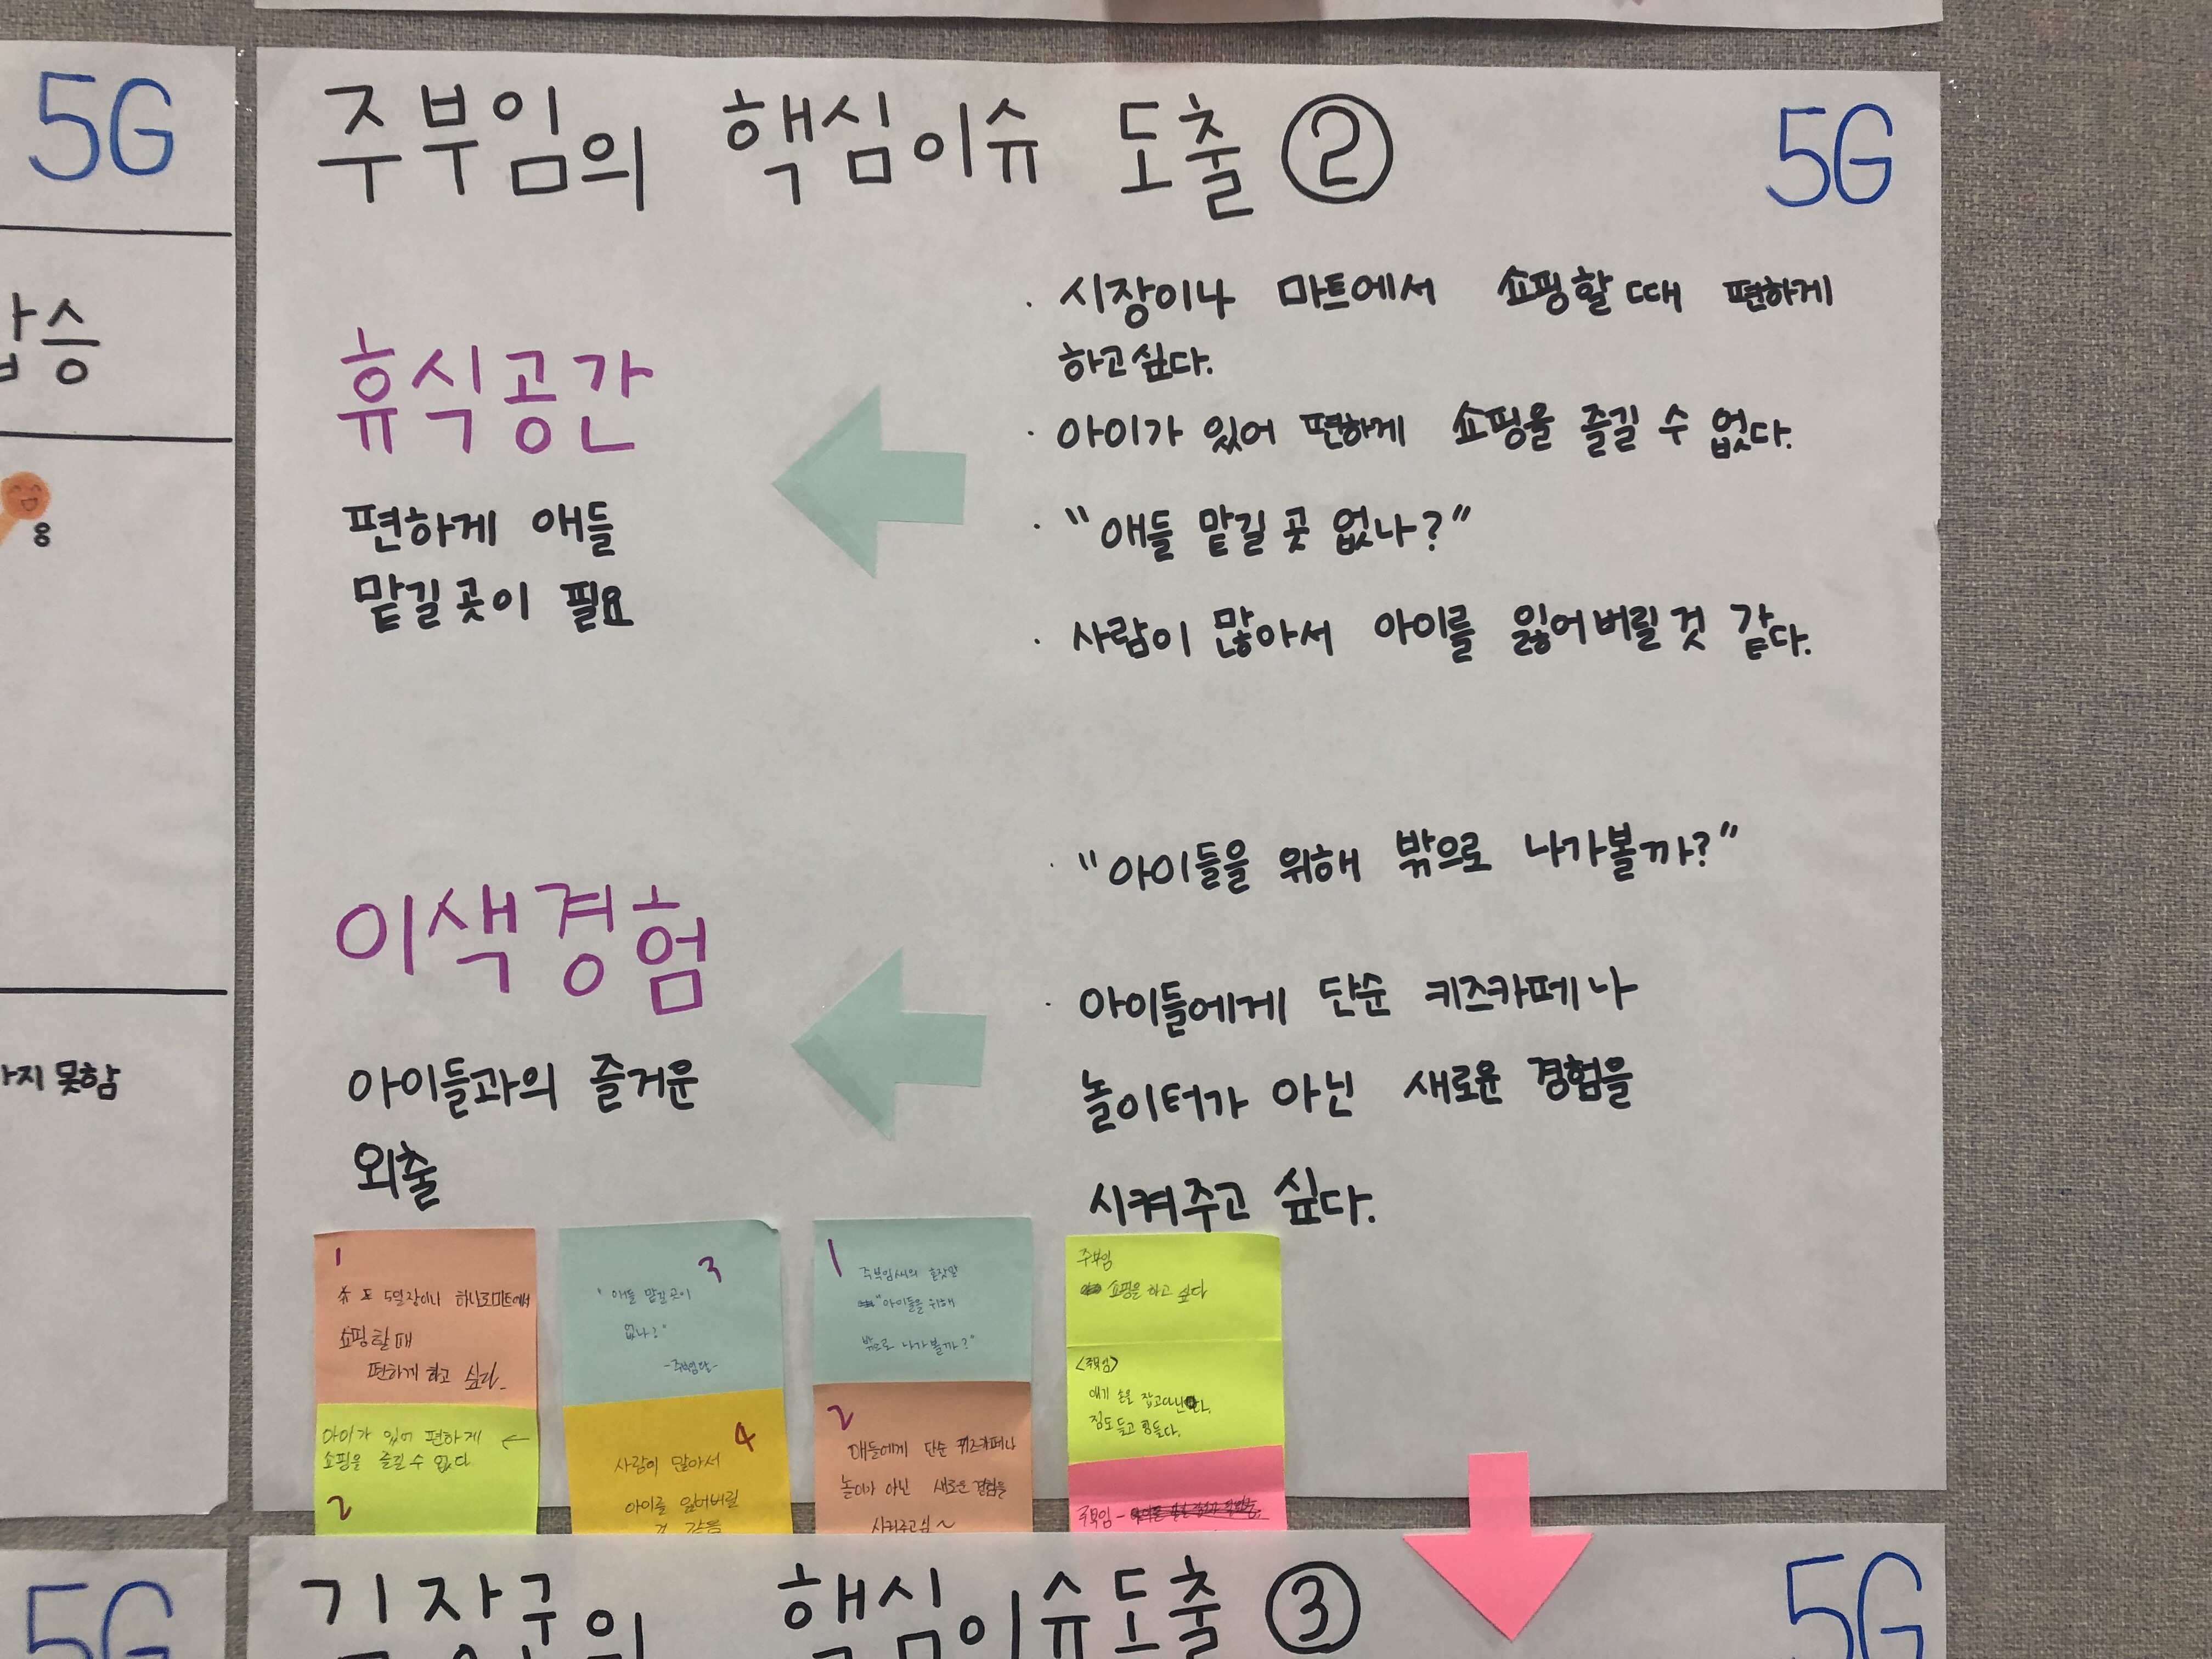 5G
주부임의 핵심이슈 도출 ②
5G
휴식공간
편하게 애들
맡길 곳이 필요
· 시장이나 마트에서 쇼핑할 때 편하게
하고 싶다.
· 아이가 있어 편하게 쇼핑을 즐길 수 없다.
· "애들 맡길 곳 없나?"
· 사람이 많아서 아이를 잃어버릴 것 같다.
이색경험
아이들과의 즐거운
외출
· "아이들을 위해 밖으로 나가볼까?"
· 아이들에게 단순 키즈카페나
놀이터가 아닌 새로운 경험을
시켜주고 싶다.
승
8
지 못함
1
5일장이나 하나로마트에서
쇼핑할 때
편하게 하고 싶다.
아이가 있어 편하게 ←
쇼핑을 즐길 수 없다.
2
3
"애들 맡길 곳이
없나?"
4
사람이 많아서
아이를 잃어버릴
것 같음
1
주부임씨의 혼잣말
"아이들을 위해
밖으로 나가볼까?"
2
애들에게 단순 키즈카페나
놀이가 아닌 새로운 경험을
시켜주고싶~
주부임
쇼핑을 하고 싶다
<주부임>
애기 손을 잡고다닌다.
짐도 들고 힘들다.
주부임 -
5G
김장군의 핵심이슈도출 ③
5G